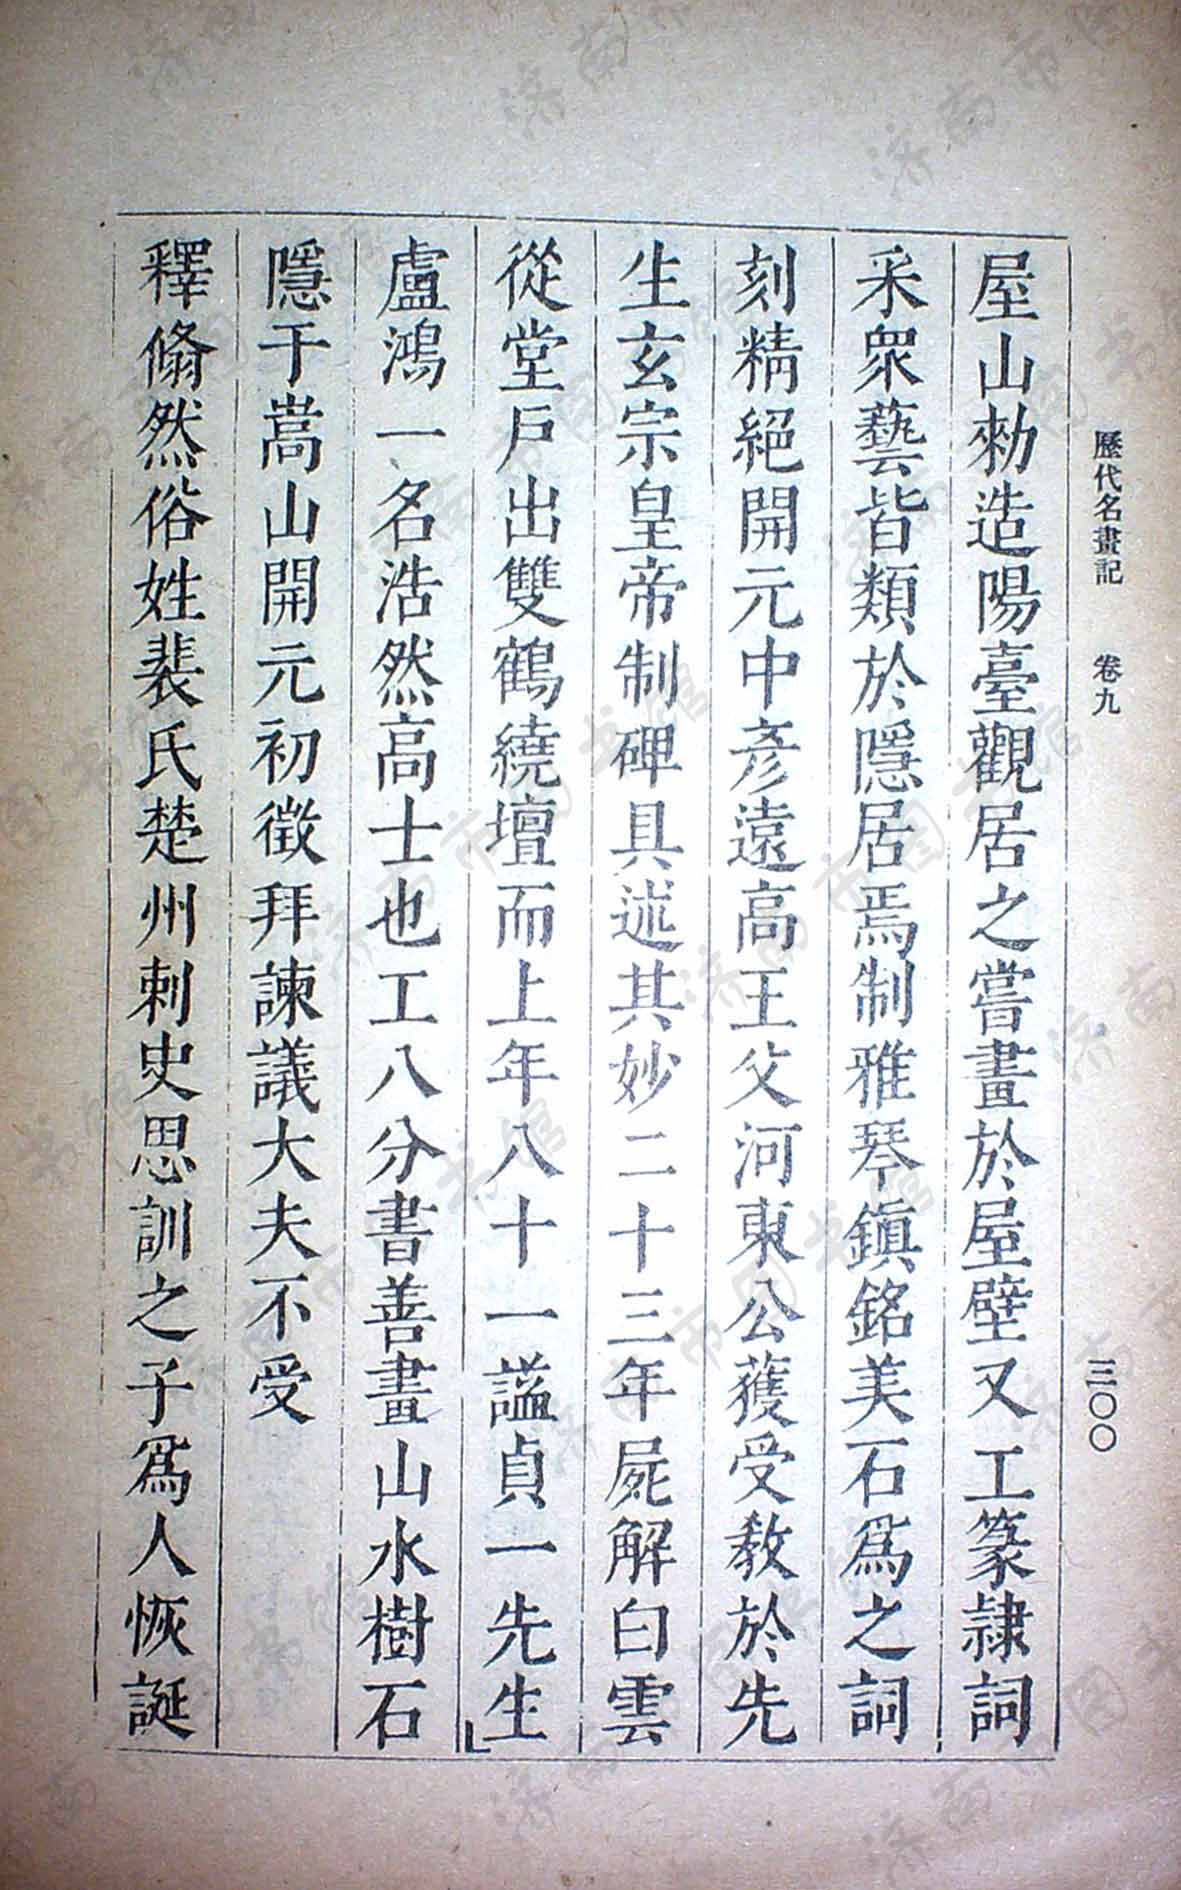 歷代名畫記　卷九　三〇〇
屋山勑造陽臺觀居之嘗畫於屋壁又工篆隸詞
采眾藝皆類於隱居焉制雅琴鎮銘美石為之詞
刻精絕開元中彥遠高王父河東公獲受教於先
生玄宗皇帝制碑具述其妙二十三年屍解白雲
從堂戶出雙鶴繞壇而上年八十一謚貞一先生」
盧鴻一名浩然高士也工八分書善畫山水樹石
隱于嵩山開元初徵拜諫議大夫不受
釋翛然俗姓裴氏楚州刺史思訓之子為人恢誕
济南市图书馆